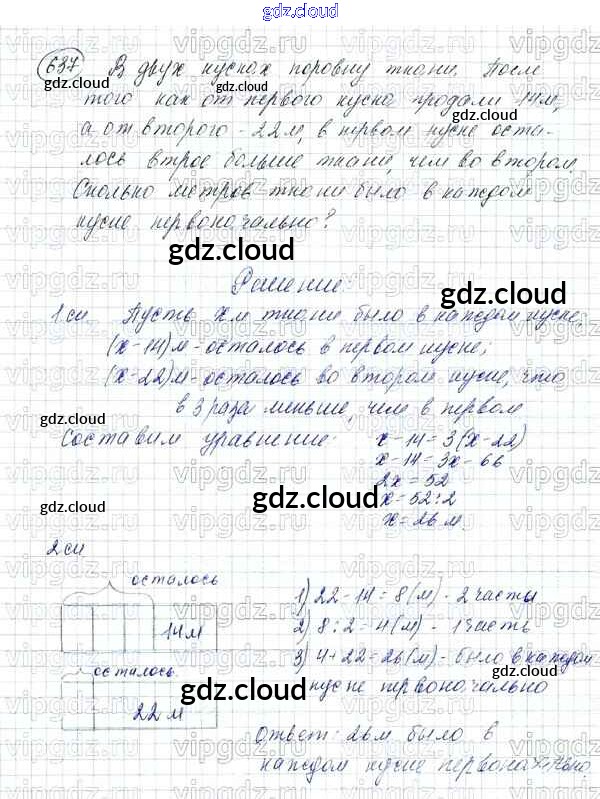 gdz.cloud
637 В двух кусках поровну ткани. После
того как от первого куска продали 14м,
а от второго - 22м, в первом куске оста-
лось втрое больше ткани, чем во втором.
Сколько метров ткани было в каждом
куске первоначально?
Решение:
1 сп. Пусть x м ткани было в каждом куске;
(x-14)м - осталось в первом куске;
(x-22)м - осталось во втором куске, что
в 3 раза меньше, чем в первом
Составим уравнение:
x-14=3(x-22)
x-14=3x-66
2x=52
x=52:2
x=26 м.
2 сп
осталось
14м
осталось
22 м
1) 22-14=8(м) - 2 части
2) 8:2=4(м) - 1 часть
3) 4+22=26(м) - было в каждом
куске первоначально
Ответ: 26м было в
каждом куске первоначально.
gdz.cloud
vipgdz.ru